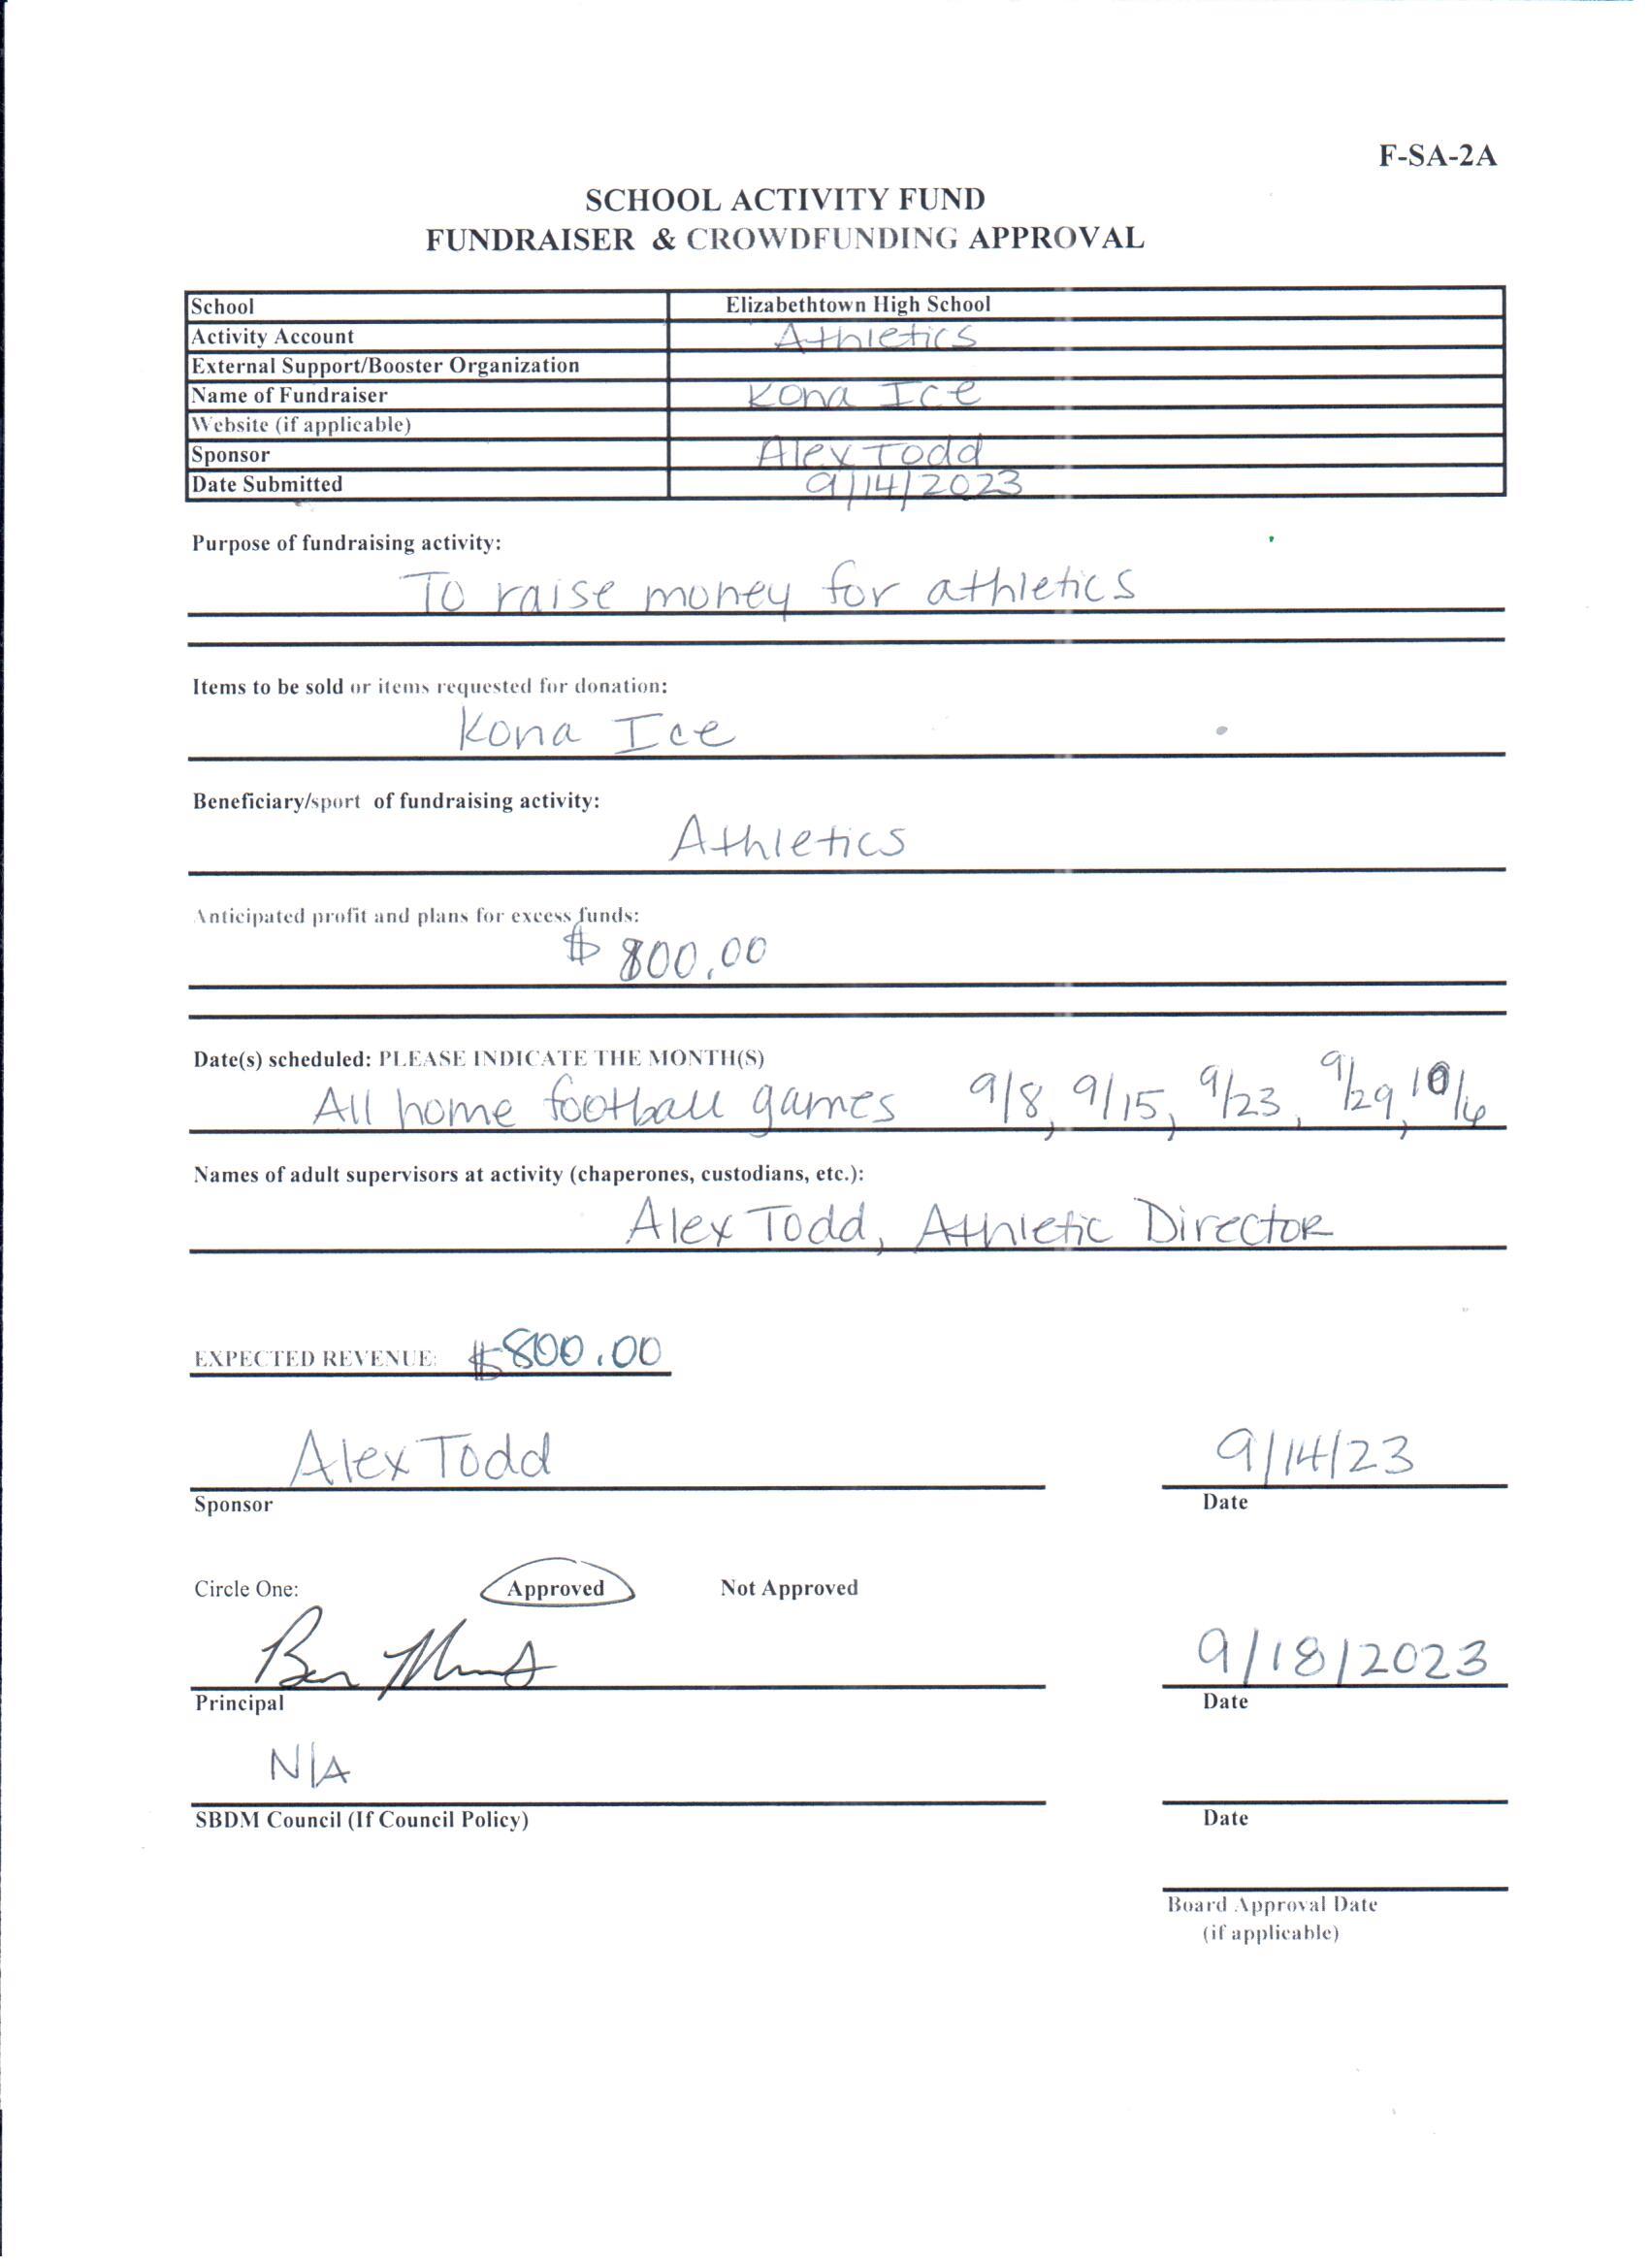 F-SA-2A
SCHOOL ACTIVITY FUND
FUNDRAISER & CROWDFUNDING APPROVAL
School Elizabethtown High School
Activity Account Athletics
External Support/Booster Organization
Name of Fundraiser Kona Ice
Website (if applicable)
Sponsor Alex Todd
Date Submitted 9/14/2023
Purpose of fundraising activity:
To raise money for athletics
Items to be sold or items requested for donation:
Kona Ice
Beneficiary/sport of fundraising activity:
Athletics
Anticipated profit and plans for excess funds:
$ 800.00
Date(s) scheduled: PLEASE INDICATE THE MONTH(S)
All home football games 9/8, 9/15, 9/23, 9/29, 10/6
Names of adult supervisors at activity (chaperones, custodians, etc.):
Alex Todd, Athletic Director
EXPECTED REVENUE: $800.00
Alex Todd 9/14/23
Sponsor Date
Circle One: Approved Not Approved
Ben 9/18/2023
Principal Date
N/A
SBDM Council (If Council Policy) Date
Board Approval Date
(if applicable)